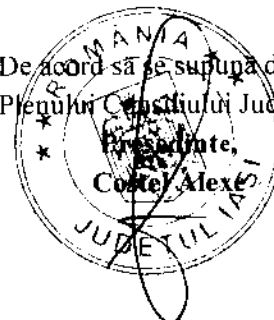 De acord să se supună d
Plenului Consiliului Jud
Președinte,
Costel Alexe
ROMANIA
JUDEȚUL IAȘI